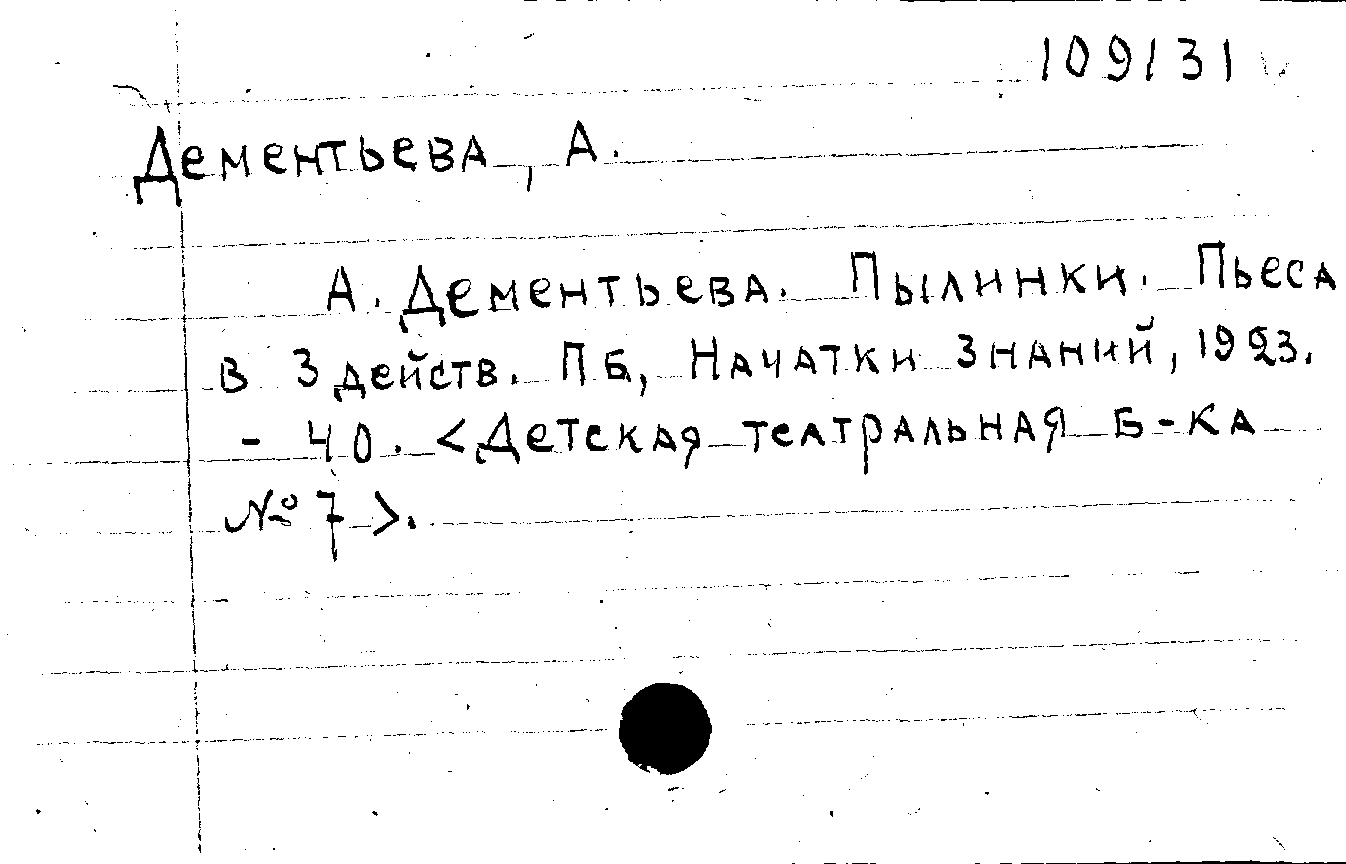 109131
Дементьева, А.
А. Дементьева. Пылинки. Пьеса
в 3 действ. ПБ, Начатки Знаний, 1923.
- 40. <Детская театральная Б-ка
№ 7>.